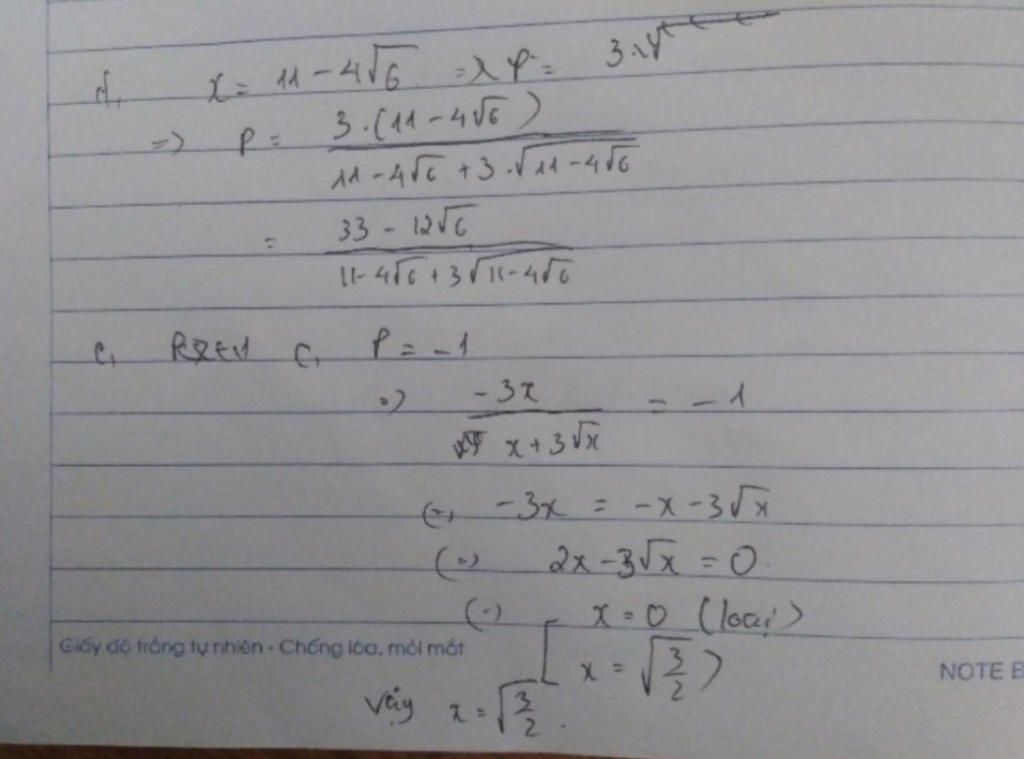 d, x = 11 - 4√6 => P = 3.
=> P = 3.(11 - 4√6) / (11 - 4√6 + 3.√(11 - 4√6))
= (33 - 12√6) / (11 - 4√6 + 3√(11 - 4√6))
c, P = -1
=> -3x / (x + 3√x) = -1
(=) -3x = -x - 3√x
(=) 2x - 3√x = 0
(=) [ x = 0 (loại)
x = √(3/2) )
Giấy độ trắng tự nhiên - Chống lóa, mỏi mắt
NOTE B
Vậy x = √(3/2).